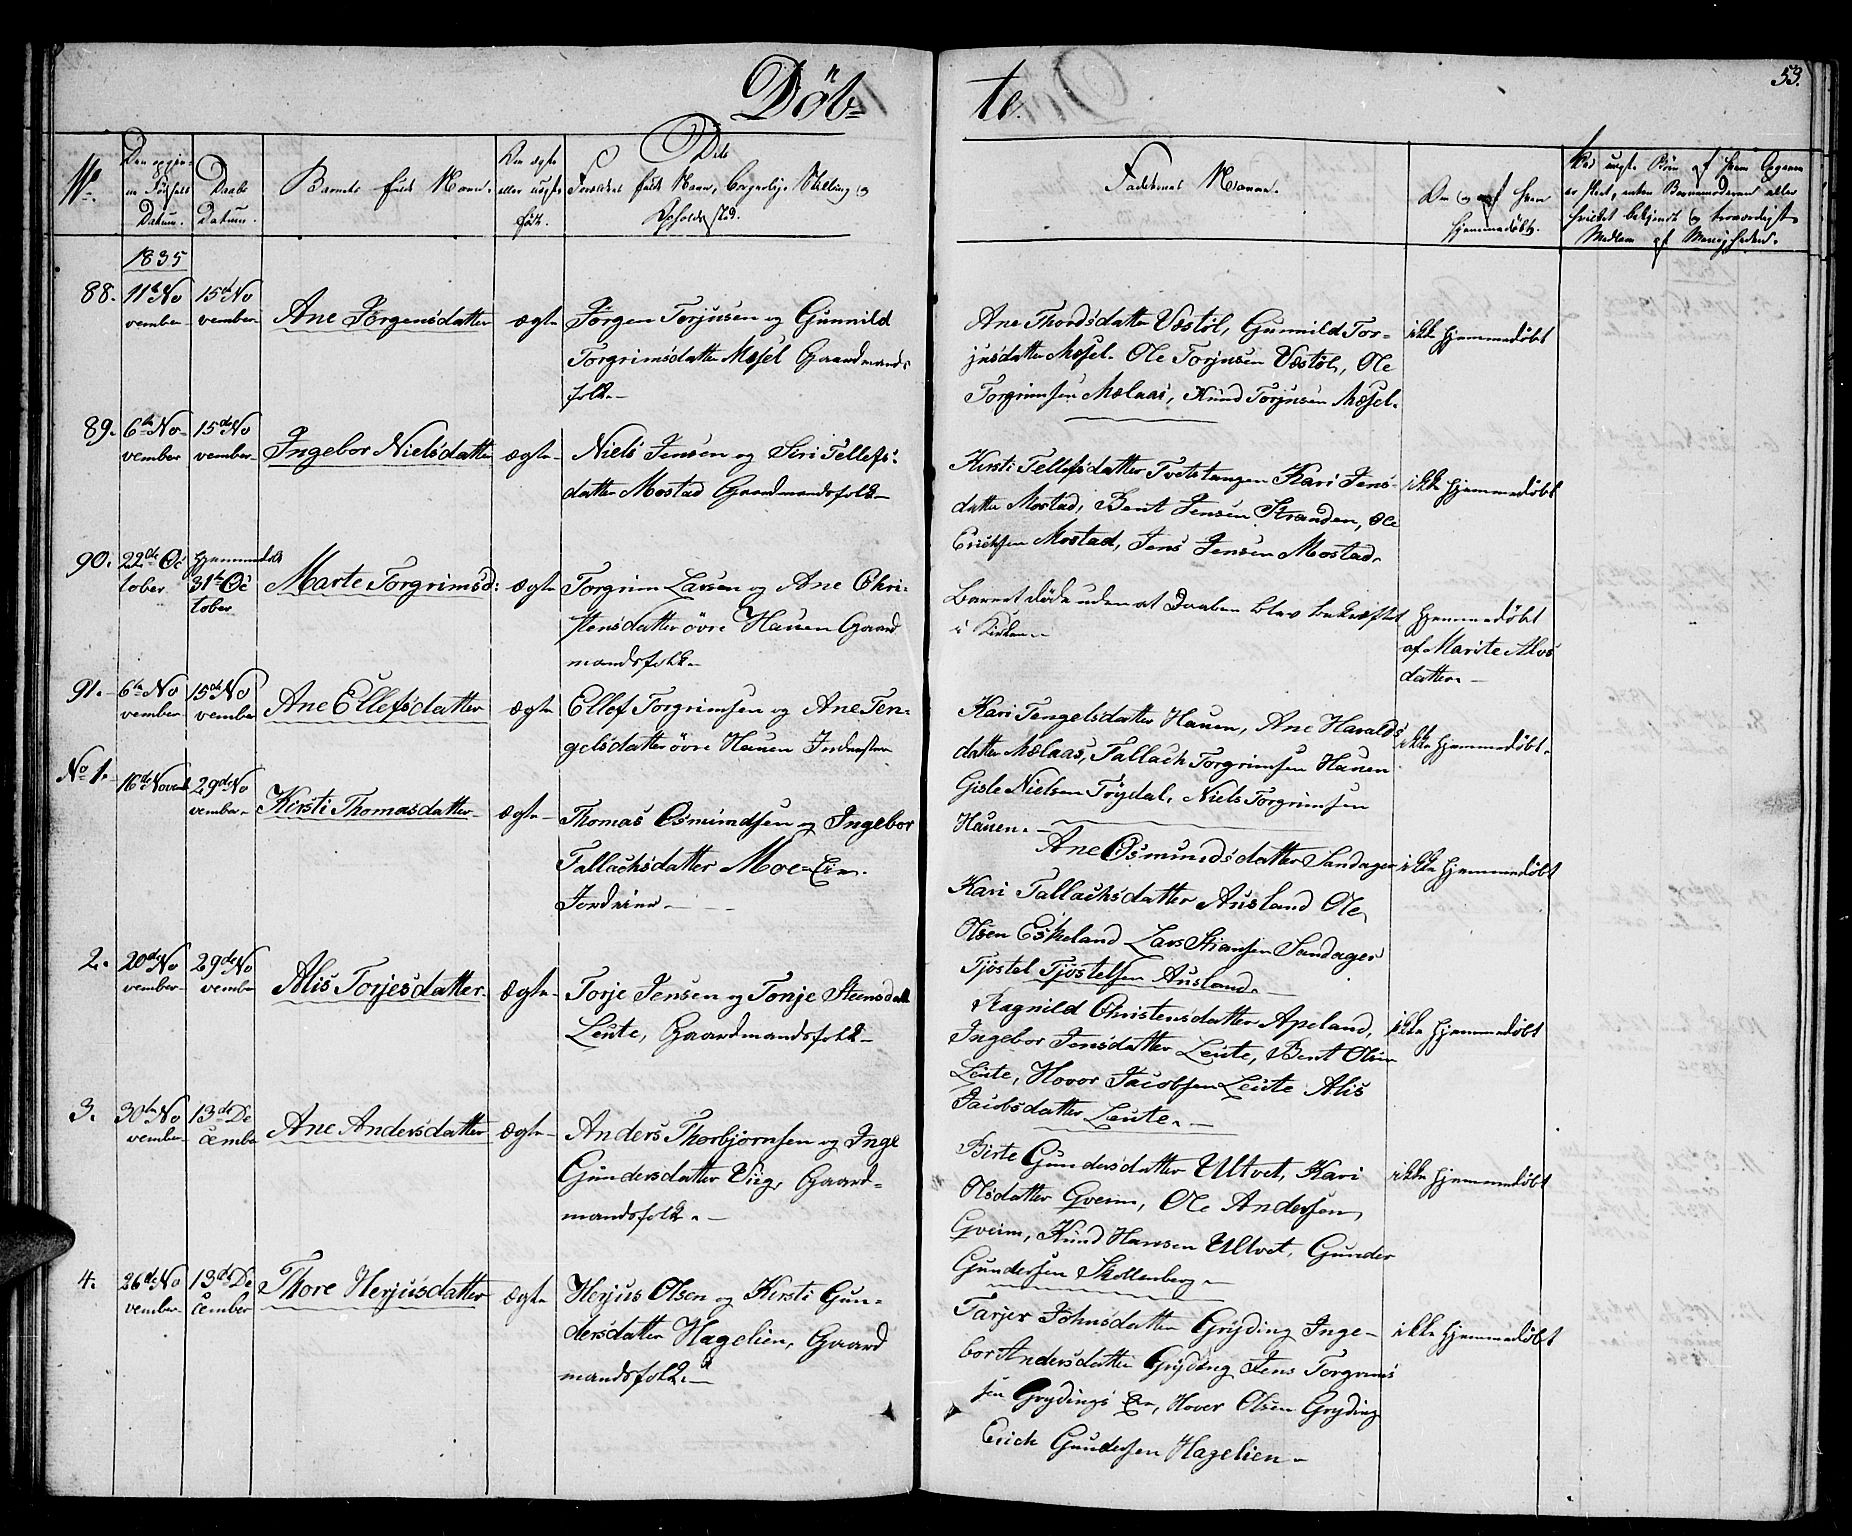 Döbte.
53.
No.
Den opgivne Fødsels Datum.
Daabs Datum.
Barnets fulde Navn.
Om ægte eller uægte født.
Dets Forældres fulde Navn, borgerlige Stilling og Opholdssted.
Faddernes Navne.
Om og af hvem hjemmedøbt.
Ved uægte Børn af hvem Opgaven er skeet, enten Barnemoderen eller hvilket bekjendt og troværdigt Medlem af Menigheden.
1835
88.
11te No
vember
15de No
vember
Ane Jørgensdatter
ægte
Jørgen Torjusen og Gunnild
Torgrimsdatter Mæsel Gaardmands
folk
Ane Thordsdatter Væstøl, Gunnild Tor-
jusdatter Mæsel. Ole Torjusen Væstøl, Ole
Torgrimsen Mælaas, Knud Torjusen Mæsel.
ikke hjemmedøbt
89.
6te No-
vember
15de No
vember
Ingebor Nielsdatter
ægte
Niels Jensen og Siri Tellefs-
datter Mostad Gaardmandsfolk
Kirsti Tellefsdatter Tvetetangen Kari Jens-
datter Mostad, Bent Jensen Stranden, Ole
Erichsen Mostad, Jens Jensen Mostad.
ikke hjemmedøbt
90.
22de Oc
tober
hjemmedøbt
31te Oc
tober
Marte Torgrimsd:
ægte
Torgrim Larsen og Ane Chri-
stensdatter övre Hauen Gaard
mandsfolk
Barnet døde uden at Daaben blev bekræftet
i Kirken
hjemmedøbt
af Marite Alvs
datter
91.
6te No
vember
15de No
vember
Ane Ellefsdatter
ægte
Ellef Torgrimsen og Ane Ten-
gelsdatter övre Hauen Inderster
Kari Tengelsdatter Hauen, Ane Haralds
datter Mælaas, Tallach Torgrimsen Hauen
Gisle Nielsen Trydal, Niels Torgrimsen
Hauen.
ikke hjemmedøbt.
No 1.
16de Novemb
29de No
vember
Kirsti Thomasdatter
ægte
Thomas Osmundsen og Ingebor
Tallachsdatter Moe-Eie.
Jordeiere
Ane Osmundsdatter Sandager
Kari Tallachsdatter Ausland Ole
Olsen Eskeland Lars Stiansen Sandager
Tjöstel Tjöstelsen Ausland.
ikke hjemmedøbt
2.
20de No
vember
29de No
vember
Alis Torjesdatter.
ægte
Torje Jensen og Tonje Steensdatt
Leute, Gaardmandsfolk
Ragnild Christensdatter Apeland,
Ingebor Jensdatter Leute, Bent Olsen
Leute, Hovor Jacobsen Leute Alis
Jacobsdatter Leute.
ikke hjemmedøbt
3.
30te No
vember
13de De
cember
Ane Andersdatter
ægte
Anders Thorbjørnsen og Inge
Gundersdatter Vieg, Gaard-
mandsfolk.
Birte Gundersdatter Ultvet, Kari
Olsdatter Gveim, Ole Andersen
Gveim, Knud Hansen Ultvet, Gunder
Gundersen Skollenberg
ikke hjemmedøbt
4.
26de No
vember
13de De
cember
Thore Herjusdatter
ægte
Herjus Olsen og Kirsti Gun-
dersdatter Hagelien, Gaard
mandsfolk.
Tarjer Johnsdatter Gryding Inge-
bor Andersdatter Gryding Jens Torgrims
sen Grydings Eie, Hover Olsen Gryding
Erich Gundersen Hagelien
ikke hjemmedøbt